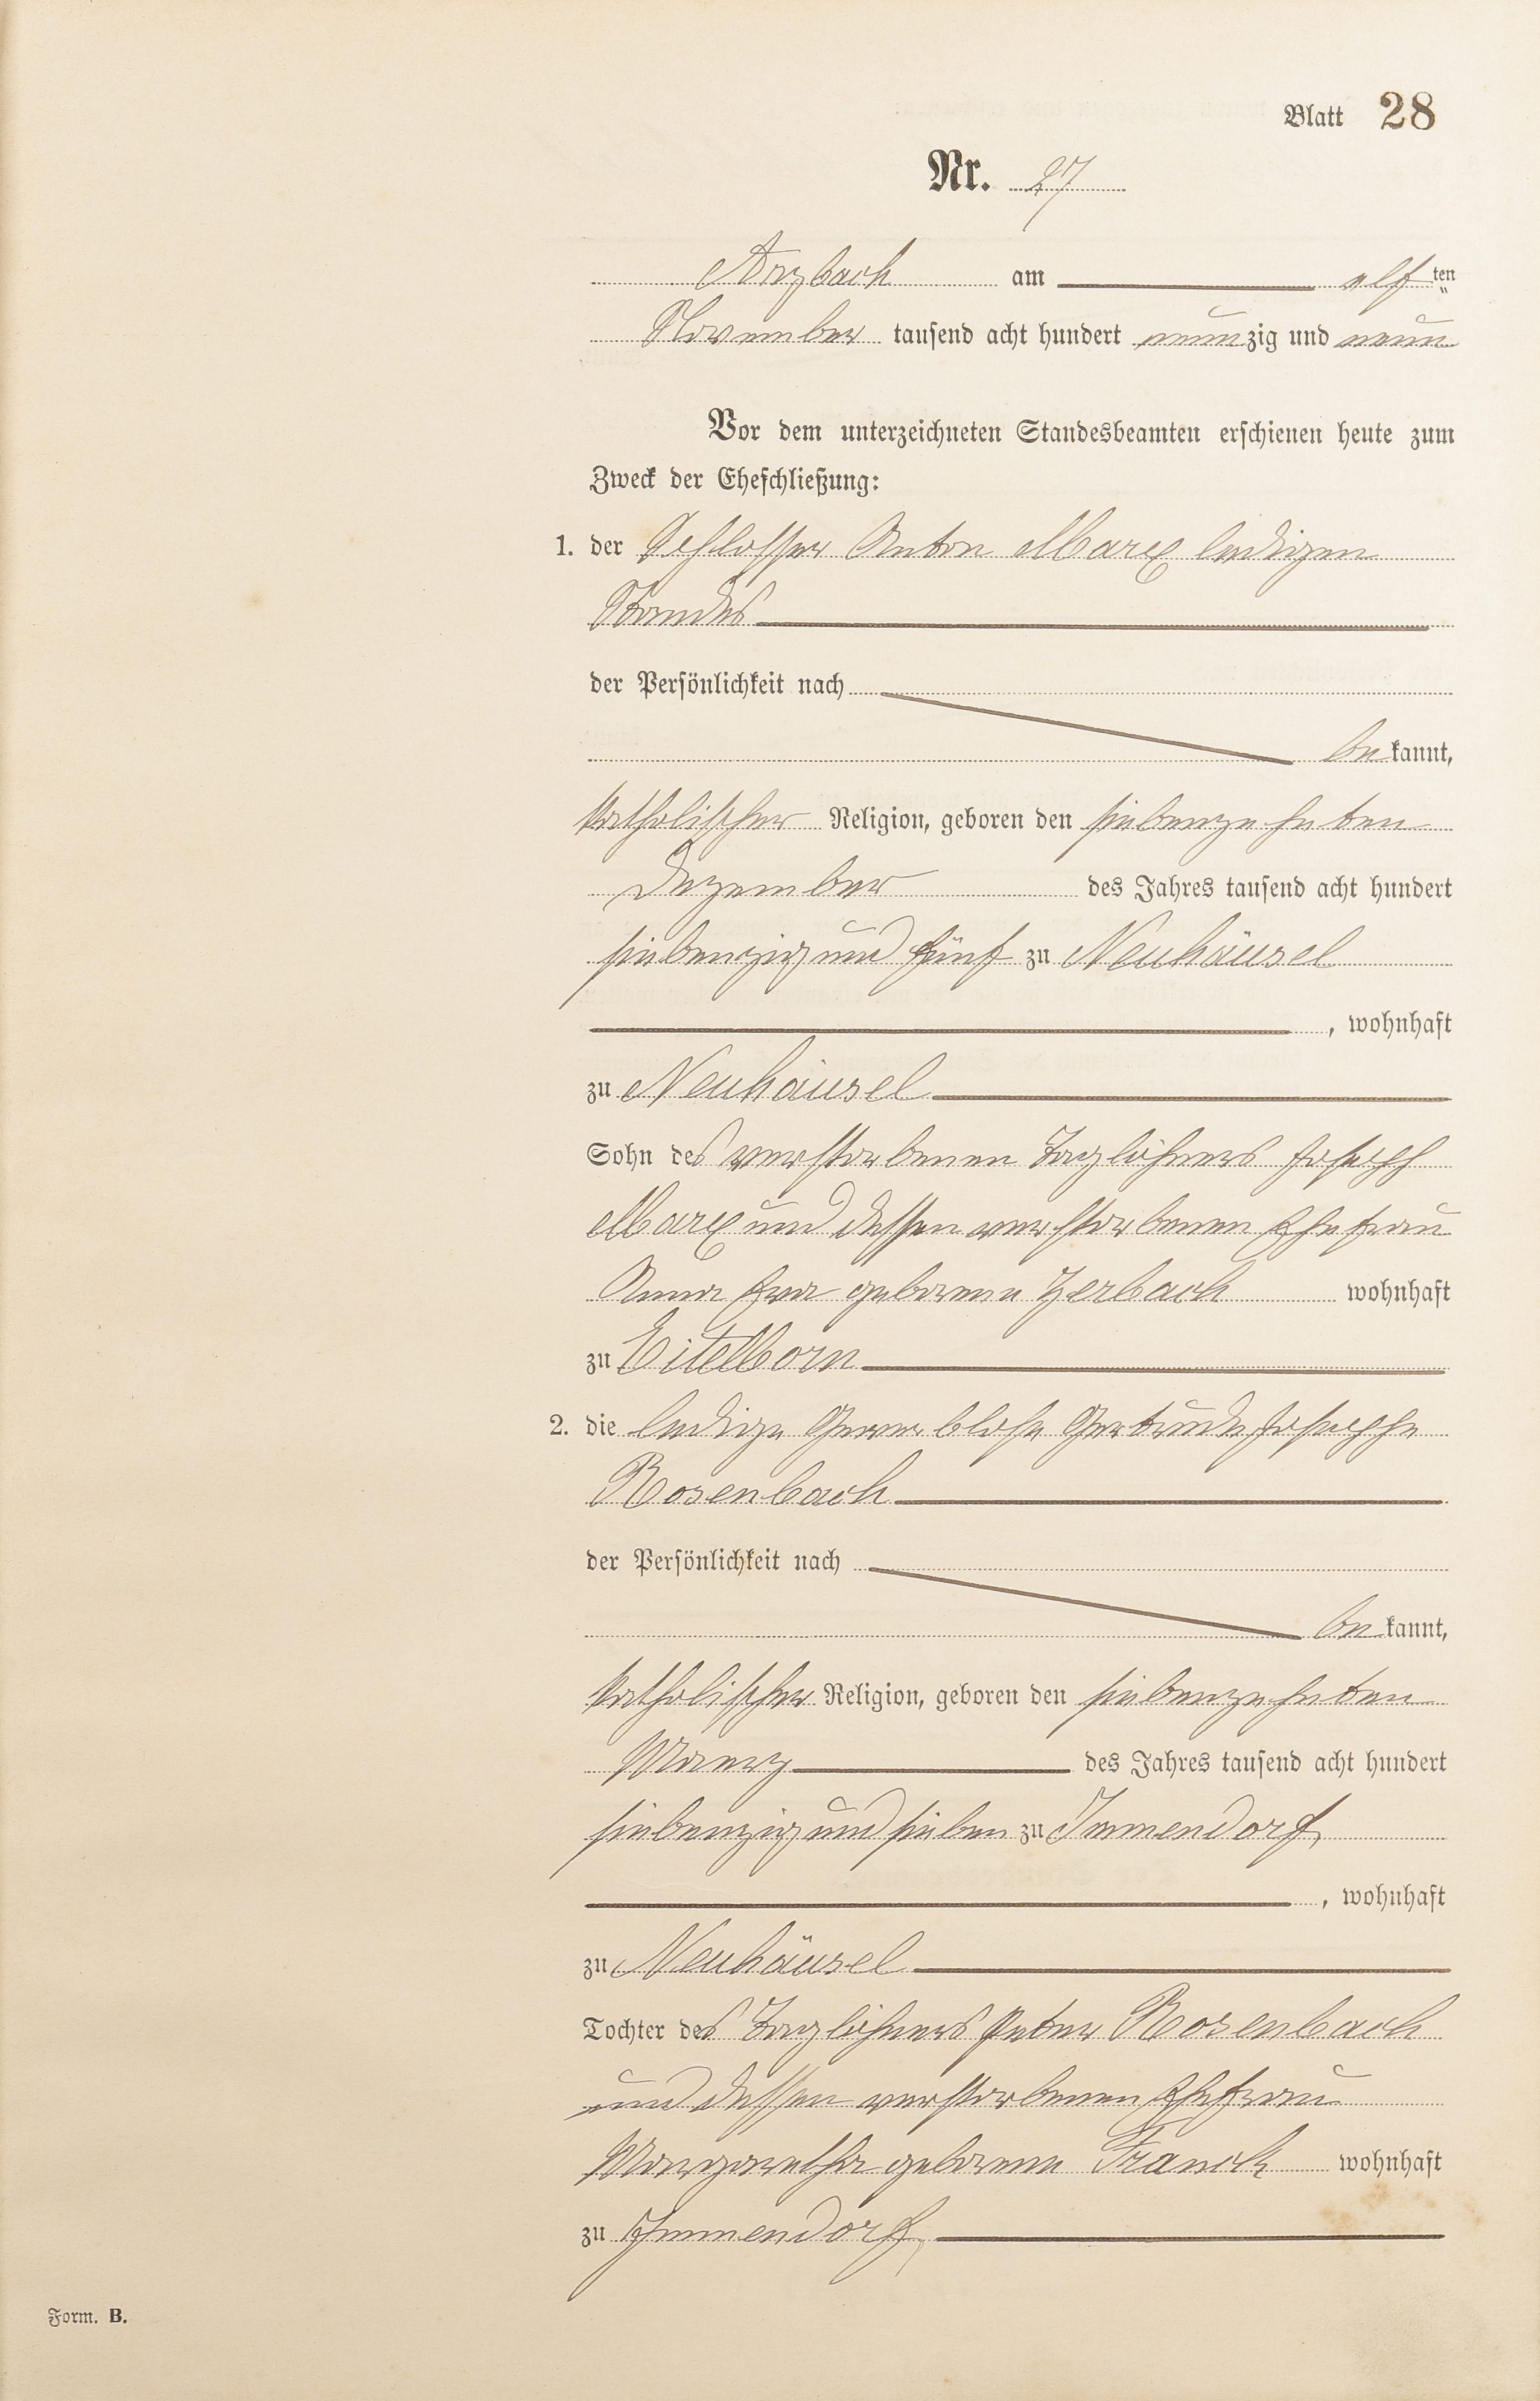 Blatt 28
Nr. 27
Arzbach am elf ten
November tausend acht hundert neunzig und neun
Vor dem unterzeichneten Standesbeamten erschienen heute zum
Zweck der Eheschließung:
1. der Schlosser Anton Marx ledigen
Standes
der Persönlichkeit nach
be kannt,
katholischer Religion, geboren den siebenzehnten
Dezember des Jahres tausend acht hundert
siebenzig und fünf zu Neuhäusel
, wohnhaft
zu Neuhäusel
Sohn des verstorbenen Taglöhners Joseph
Marx und dessen verstorbenen Ehefrau
Anna Eva geborene Zerbach wohnhaft
zu Eitelborn
2. die ledige Gewerblose Gertrude Josephe
Rosenbach
der Persönlichkeit nach
be kannt,
katholischer Religion, geboren den siebenzehnten
Maerz des Jahres tausend acht hundert
siebenzig und sieben zu Immendorf,
, wohnhaft
zu Neuhäusel
Tochter des Taglöhners Peter Rosenbach
und dessen verstorbenen Ehefrau
Margaretha geborene Franck wohnhaft
zu Immendorf,
Form. B.